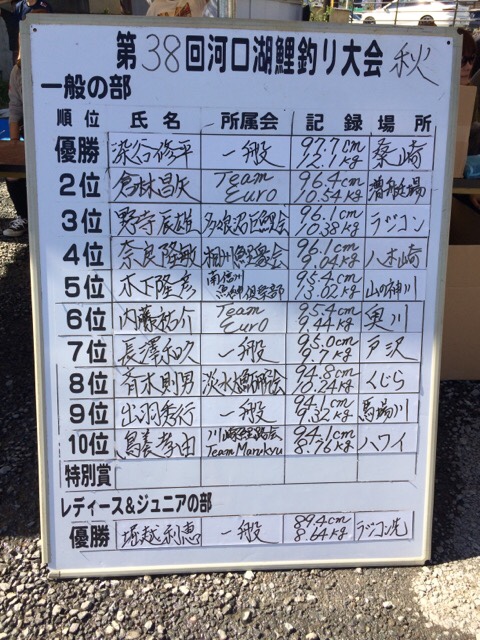 第38回河口湖鯉釣り大会 秋
一般の部
順位 氏名 所属会 記録 場所
優勝 染谷修平 一般 97.7cm 12.1kg 秦崎
2位 倉林昌矢 Team Euro 96.4cm 10.54kg
3位 野寺辰雄 多々良沼巨鯉会 96.1cm 10.38kg ラジコン
4位 奈良隆敏 相州鯉釣会 96.1cm 9.04kg 八木崎
5位 木下隆彦 南信川 倶楽部 95.4cm 13.02kg 山の神川
6位 内藤祐介 Team Euro 95.4cm 9.44kg 奥川
7位 長澤和久 一般 95.0cm 9.7kg 戸沢
8位 斉木則男 淡水大魚研究会 94.8cm 10.24kg くじら
9位 出羽秀行 一般 94.1cm 9.32kg 馬場川
10位 鳥養孝由 Team Marukyu 94.1cm 8.76kg ハワイ
特別賞
レディース&ジュニアの部
優勝 堀越利恵 一般 89.4cm 8.64kg ラジコン先